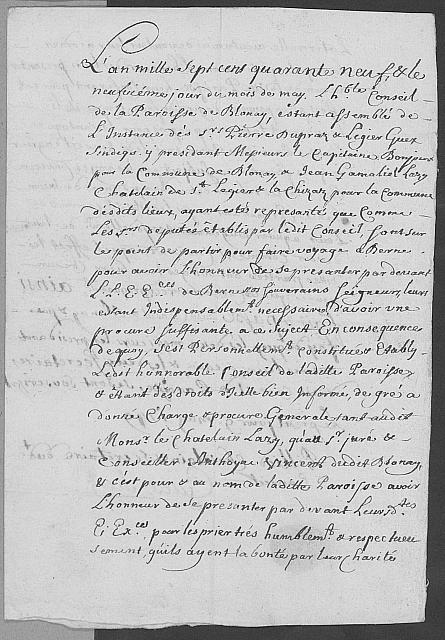 L'an mille sept cens quarante neuf, & le
neufvieme jour du mois de may. L'h.ble Conseil
de la Paroisse de Blonay, estant assemblés de
L'Instance des Srs Pierre Dupraz & Legier Guex
Sindiqs. y presidant Messieurs le Capitaine Bonjour
pour la Commoune de Blonay, & Jean Gamaliel Lazy
Chatelain de St. Legier & la Chiezaz pour la Commune
desdits lieux, ayant estés representés que Comme
Les Srs deputés establis par ledit Conseil sont sur
le point de partir pour faire voyage a Berne
pour avoir L'honneur de se presanter par devant
L.L. E.E.ces de Berne nos souverains Seigneurs, leurs
estant Indispensablemt. necessaire d'avoir une
procure suffisante a ce suject. En consequence
de quoy, s'est Personnellemt. constitué & Etably
Ledit honnorable Conseil de ladite Paroisse,
& étant des droits d'Icelle bien Informé, de gré a
donné Charge & procure Generale tant audit
Monsr. le Chatelain Lazy, qu'au Sr. juré &
Conseiller Anthoyne Vincent dudit Blonay,
& c'est pour & au nom de ladite Paroisse avoir
L'honneur de se presanter par devant Leurs dtes
E. Exces, pour les prier trés humblemt. & respectueu
sement, qu'ils ayent la bonté par leur Charité